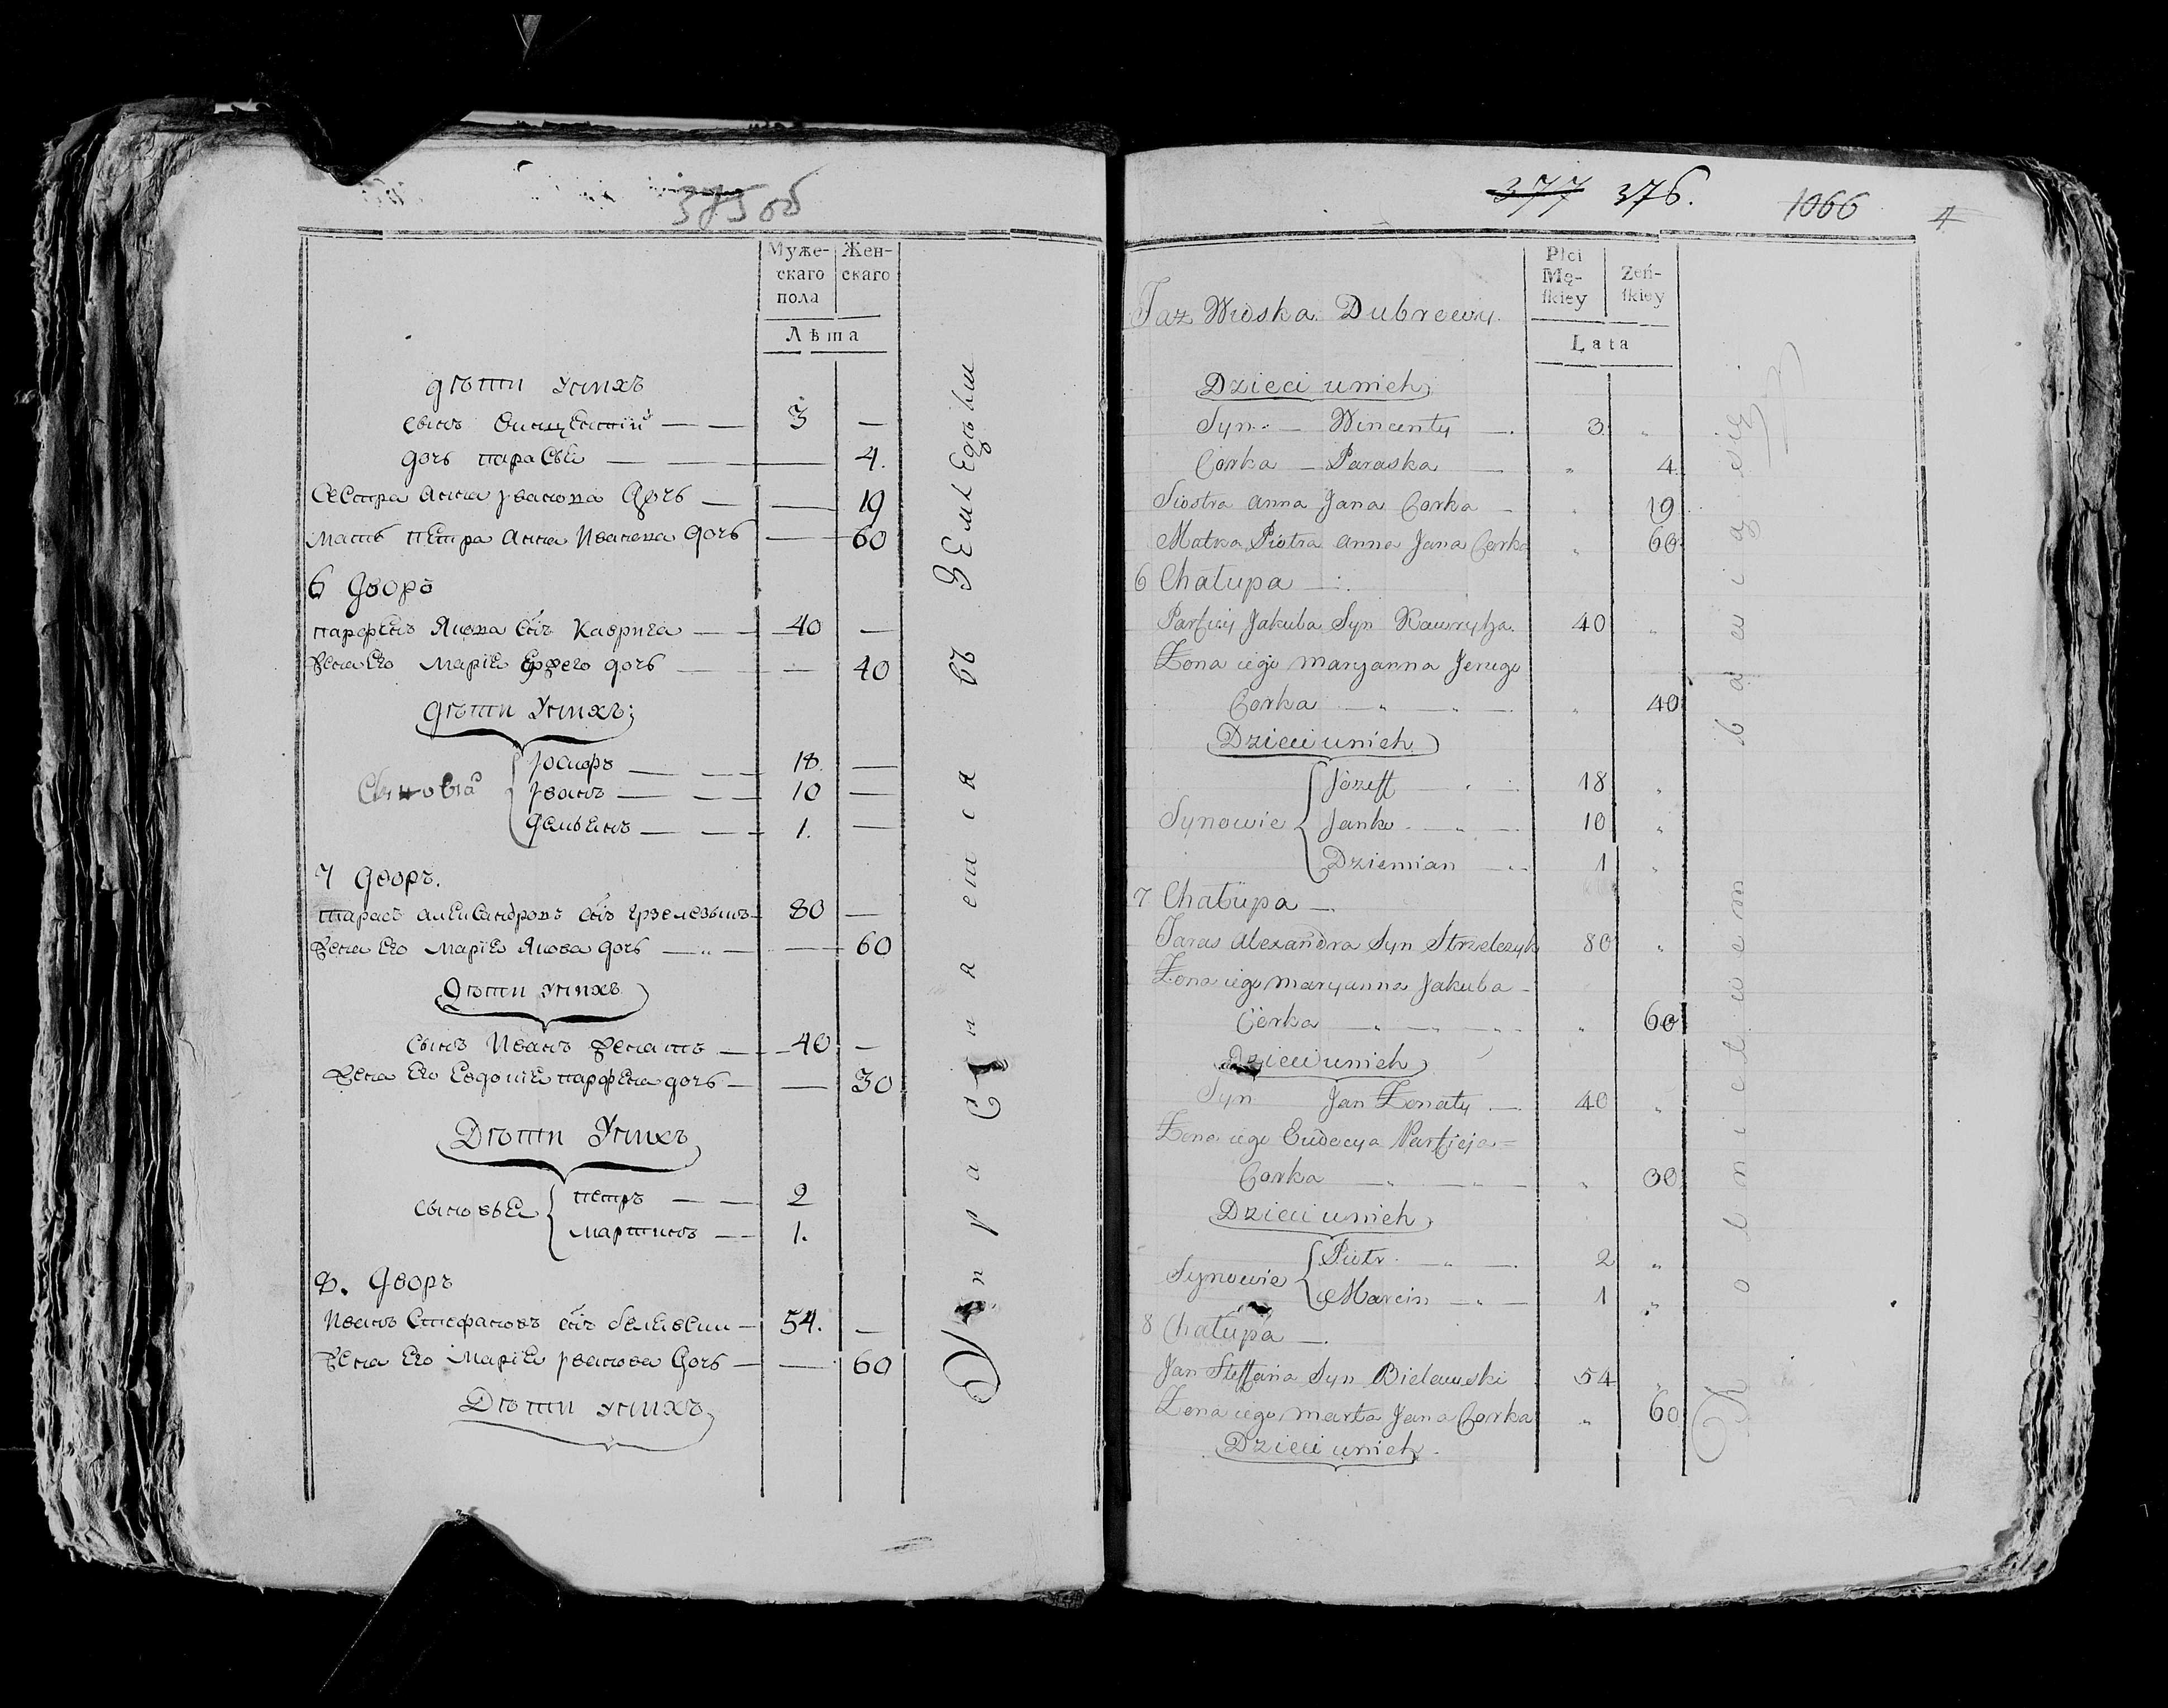 375 об
Муже-
скаго
пола
Жен-
скаго
Лѣта
дѣти унихъ
сынъ Винцентий 3 —
дочь параскѣ — 4.
Сестра Анна Іванова дочь — 19
мать петра Анна Иванова дочь — 60
6 Дворъ
парфенъ Якова сынъ Каврига 40 —
жена Его Мариѣ дочь — 40
дѣти унихъ
Сыновіа
іосифъ 18 —
іванъ 10 —
Демьянъ 1. —
7 Дворъ.
тарасъ александровъ сынъ 80 —
жена Его Мариѣ Якова дочь — 60
Дѣти унихъ
сынъ Иванъ женатъ 40 —
жена Его Евдокиѣ парфена дочь — 30
Дѣти Унихъ
сыновьѣ
петръ 2
мартинъ 1.
8. Дворъ
Иванъ Стефановъ сынъ 54. —
жена Его Мариѣ іванова дочь — 60
Дѣти унихъ
Упраспняется въ Земледѣлїи
377 376. 1066 4
Płci
Mę-
ſkiey
Zeń-
ſkiey
Lata
Taz Wioska Dubrowy.
Dzieci unich
Syn — Wincenty — 3 "
Corka — Paraska — " 4
Siostra Anna Jana Corka — " 19
Matka Piotra Anna Jana Corka " 60
6 Chałupa —
Parfiey Jakuba Syn Kawryha 40 "
Zona iego Maryanna Jerzego
Corka — " 40
Dzieci unich
Synowie
Jozeff 18 "
Janko 10 "
Dziemian 1 "
7 Chałupa —
Taras Alexandra Syn Strzelczyk 80 "
Zona iego Maryanna Jakuba
Corka — " 60
Dzieci unich
Syn Jan Zonaty — 40 "
Zona iego Eudocya Parfieja
Corka — " 30
Dzieci unich
Synowie
Piotr 2 "
Marcin 1 "
8 Chałupa —
Jan Steffana Syn Bielawski 54 "
Zona iego Marta Jana Corka " 60
Dzieci unich
Rolnictwem bawią się